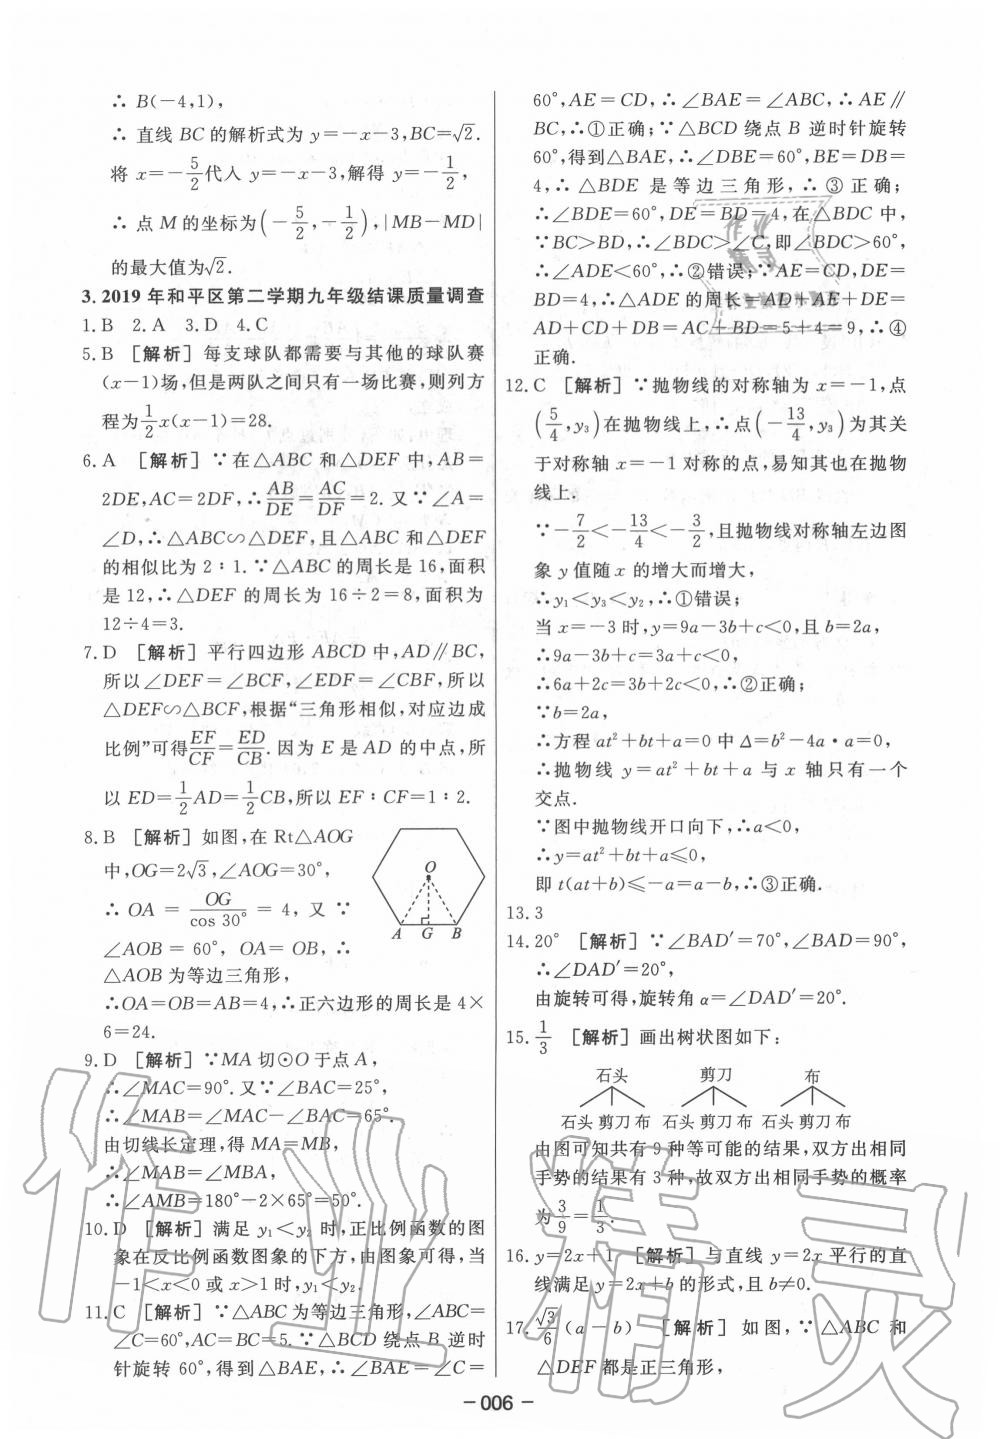 ∴ B(-4,1),
∴ 直线 BC 的解析式为 y=-x-3,BC=√2.
将 x=-5/2代入 y=-x-3,解得 y=-1/2,
∴ 点 M 的坐标为(-5/2,-1/2),|MB-MD|
的最大值为√2.
3. 2019 年和平区第二学期九年级结课质量调查
1. B 2. A 3. D 4. C
5. B [解析] 每支球队都需要与其他的球队赛
(x-1)场,但是两队之间只有一场比赛,则列方
程为1/2x(x-1)=28.
6. A [解析] ∵在△ABC 和△DEF 中,AB=
2DE,AC=2DF,∴AB/DE=AC/DF=2. 又∵∠A=
∠D,∴△ABC∽△DEF,且△ABC 和△DEF
的相似比为 2∶1. ∵△ABC 的周长是 16,面积
是 12,∴△DEF 的周长为 16÷2=8,面积为
12÷4=3.
7. D [解析] 平行四边形 ABCD 中,AD∥BC,
所以∠DEF=∠BCF,∠EDF=∠CBF,所以
△DEF∽△BCF,根据“三角形相似,对应边成
比例”可得EF/CF=ED/CB. 因为 E 是 AD 的中点,所
以 ED=1/2AD=1/2CB,所以 EF∶CF=1∶2.
8. B [解析] 如图,在 Rt△AOG
中,OG=2√3,∠AOG=30°,
∴ OA = OG/cos 30° = 4, 又 ∵
∠AOB = 60°, OA = OB, ∴
△AOB 为等边三角形,
O
A G B
∴OA=OB=AB=4,∴正六边形的周长是 4×
6=24.
9. D [解析] ∵MA 切⊙O 于点 A,
∴∠MAC=90°. 又∵∠BAC=25°,
∴∠MAB=∠MAC-∠BAC=65°.
由切线长定理,得 MA=MB,
∴∠MAB=∠MBA,
∴∠AMB=180°-2×65°=50°.
10. D [解析] 满足 y₁<y₂ 时,正比例函数的图
象在反比例函数图象的下方,由图象可得,当
-1<x<0 或 x>1 时,y₁<y₂.
11. C [解析] ∵△ABC 为等边三角形,∠ABC=
∠C=60°,AC=BC=5. ∵△BCD 绕点 B 逆时
针旋转 60°,得到△BAE,∴∠BAE=∠C=
60°,AE=CD,∴∠BAE=∠ABC,∴AE∥
BC,∴①正确;∵△BCD 绕点 B 逆时针旋转
60°,得到△BAE,∴∠DBE=60°,BE=DB=
4,∴△BDE 是等边三角形,∴③正确;
∴∠BDE=60°,DE=BD=4,在△BDC 中,
∵BC>BD,∴∠BDC>∠C,即∠BDC>60°,
∴②错误;∴△ADE 的周长=AD+AE+DE=
AD+CD+DB=AC+BD=5+4=9,∴④
正确.
12. C [解析] ∵抛物线的对称轴为 x=-1,点
(5/4,y₃)在抛物线上,∴点(-13/4,y₃)为其关
于对称轴 x=-1 对称的点,易知其也在抛物
线上.
∵-7/2<-13/4<-3/2,且抛物线对称轴左边图
象 y 值随 x 的增大而增大,
∴y₁<y₃<y₂,∴①错误;
当 x=-3 时,y=9a-3b+c<0,且 b=2a,
∴9a-3b+c=3a+c<0,
∴6a+2c=3b+2c<0,∴②正确;
∵b=2a,
∴方程 at²+bt+a=0 中 Δ=b²-4a·a=0,
∴抛物线 y=at²+bt+a 与 x 轴只有一个
交点.
∵图中抛物线开口向下,∴a<0,
∴y=at²+bt+a≤0,
即 t(at+b)≤-a=a-b,∴③正确.
13. 3
14. 20° [解析] ∵∠BAD′=70°,∠BAD=90°,
∴∠DAD′=20°,
由旋转可得,旋转角 α=∠DAD′=20°.
15. 1/3 [解析] 画出树状图如下:
石头 剪刀 布
石头 剪刀 布 石头 剪刀 布 石头 剪刀 布
由图可知共有 9 种等可能的结果,双方出相同
手势的结果有 3 种,故双方出相同手势的概率
为3/9=1/3.
16. y=2x+1 [解析] 与直线 y=2x 平行的直
线满足 y=2x+b 的形式,且 b≠0.
17. √3/6(a-b) [解析] 如图,∵△ABC 和
△DEF 都是正三角形,
- 006 -
作业精灵